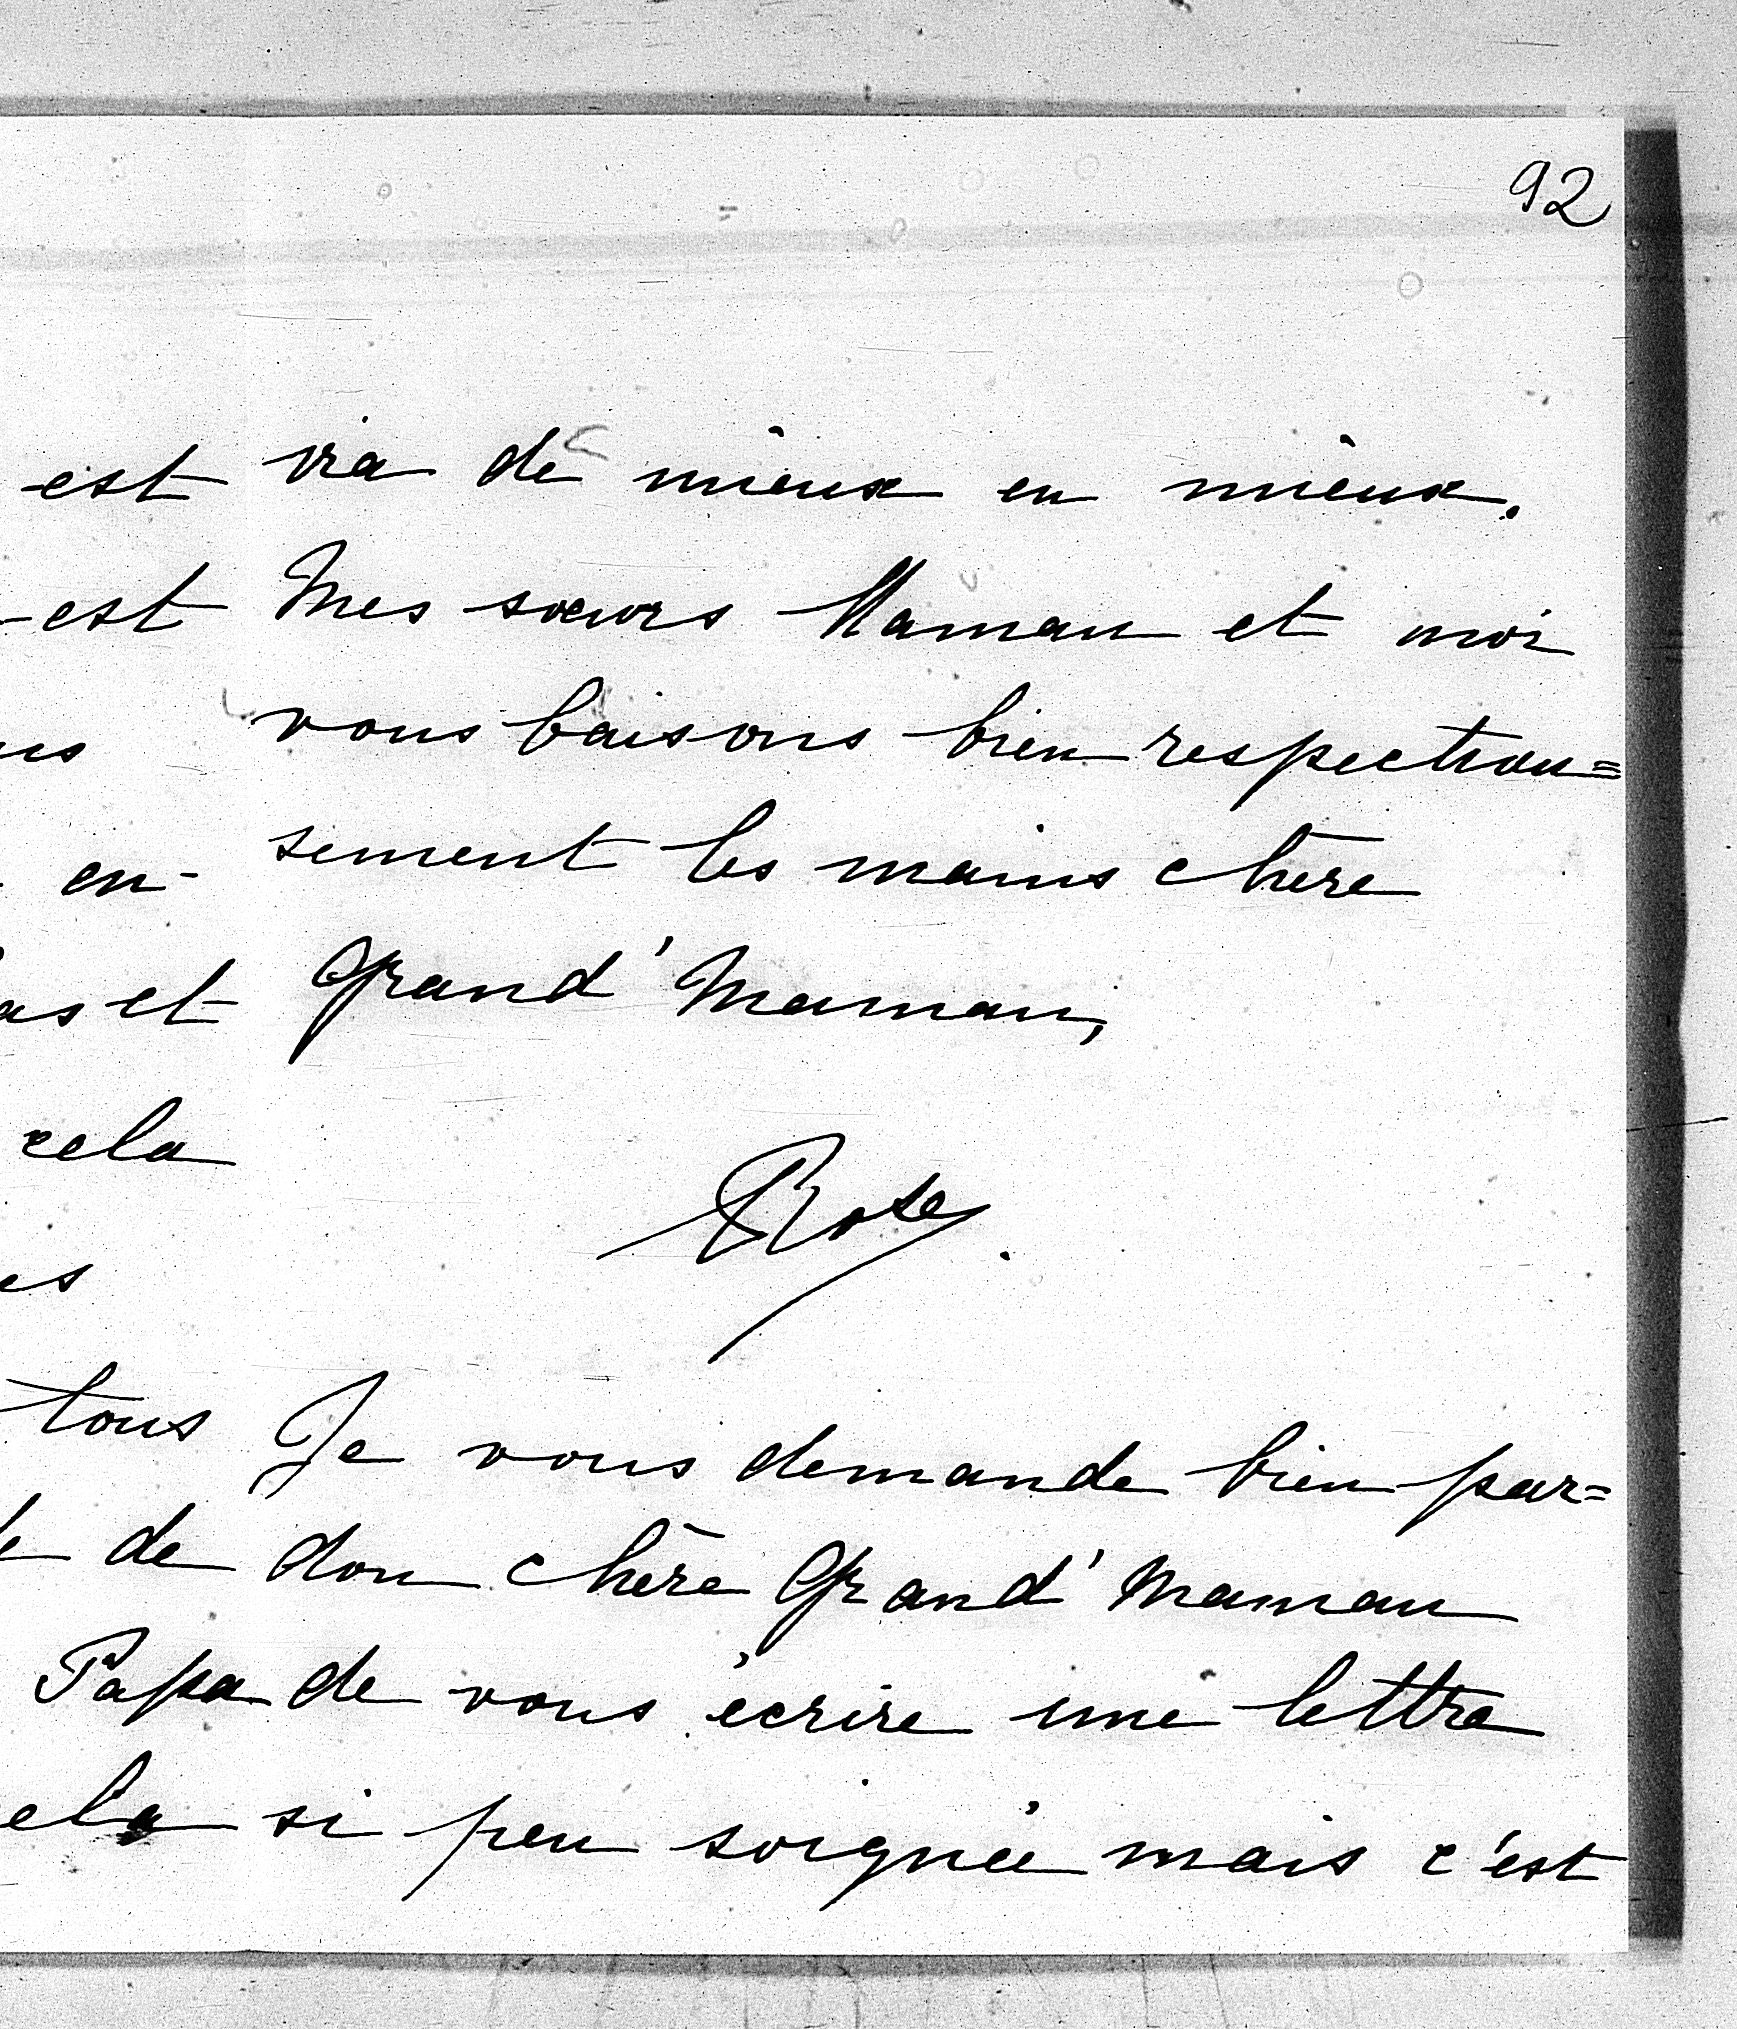 92
est
est
us
en-
as et
cela
es
tous
de
Papa
ela
va de mieux en mieux.
Mes sœurs Maman et moi
vous baisons bien respectueu=
sement les mains chère
Grand'Maman,
Rose.
Je vous demande bien par=
don chère Grand'Maman
de vous écrire une lettre
si peu soignée mais c'est